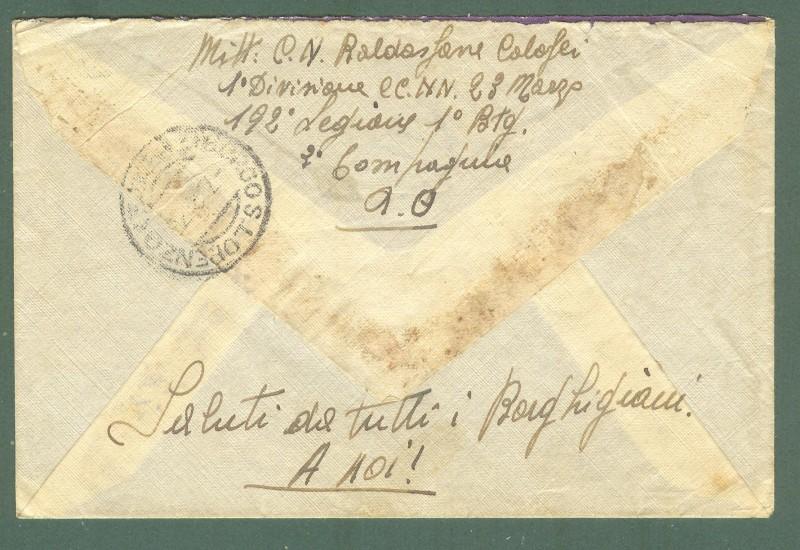 Mitt. C. N. Baldassare Colosei
1ª Divisione CC.NN. 23 Marzo
192ª Legione 1º Btg.
2ª Compagnia
A.O
BORGO S. LORENZO
Saluti da tutti i Borghigiani.
A noi!